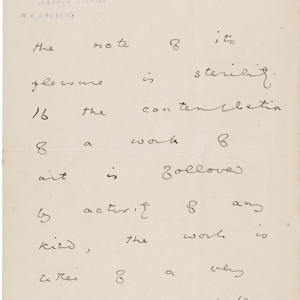 the note of its
pleasure is sterility.
If the contemplation
of a work of
art is followed
by activity of any
kind, the work is
either of a very